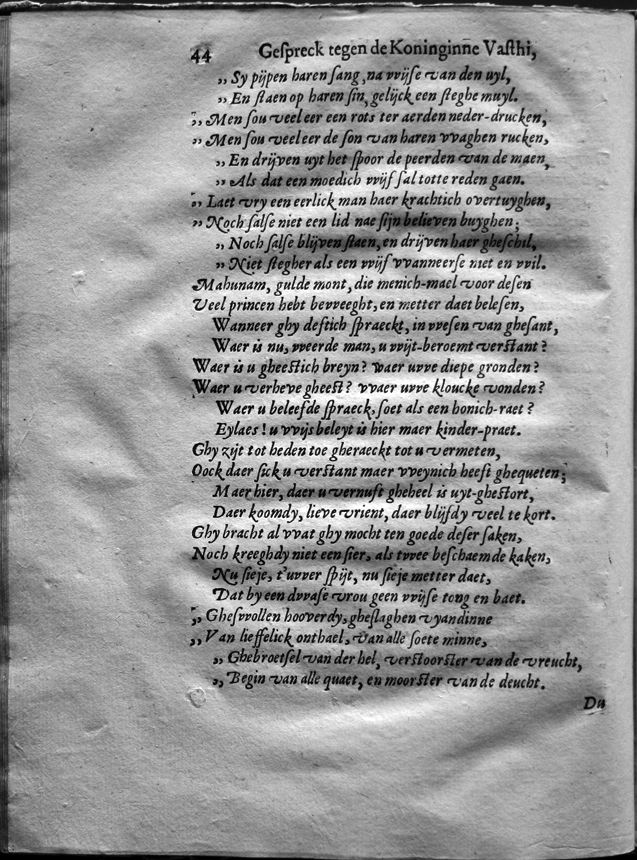 44 Gespreck tegen de Koninginne Vasthi,
„ Sy pijpen haren sang, na vvijse van den uyl,
„ En staen op haren sin, gelijck een steghe muyl.
„ Men sou veel eer een rots ter aerden neder-drucken,
„ Men sou veel eer de son van haren vvaghen rucken,
„ En drijven uyt het spoor de peerden van de maen,
„ Als dat een moedich vvijf sal totte reden gaen.
„ Laet vry een eerlick man haer krachtich overtuyghen,
„ Noch salse niet een lid nae sijn believen buyghen;
„ Noch salse blijven staen, en drijven haer gheschil,
„ Niet stegher als een vvijf vvanneerse niet en vvil.
Mahunam, gulde mont, die menich-mael voor desen
Veel princen hebt bevveeght, en metter daet belesen,
Wanneer ghy deftich spraeckt, in vvesen van ghesant,
Waer is nu, vveerde man, u vvijt-beroemt verstant?
Waer is u gheestich breyn? vvaer uvve diepe gronden?
Waer u verheve gheest? vvaer uvve kloucke vonden?
Waer u beleefde spraeck, soet als een honich-raet?
Eylaes! u vvijs beleyt is hier maer kinder-praet.
Ghy zijt tot heden toe gheraeckt tot u vermeten,
Oock daer sick u verstant maer vveynich heeft ghequeten;
Maer hier, daer u vernuft gheheel is uyt-ghestort,
Daer koomdy, lieve vrient, daer blijfdy veel te kort.
Ghy bracht al vvat ghy mocht ten goede deser saken,
Noch kreeghdy niet een sier, als tvvee beschaemde kaken,
Nu sieje, t'uvver spijt, nu sieje metter daet,
Dat by een dvvase vrou geen vvijse tong en baet.
„ Ghesvvollen hooverdy, gheslaghen vyandinne
„ Van lieffelick onthael, van alle soete minne,
„ Ghebroetsel van der hel, verstoorster van de vreucht,
„ Begin van alle quaet, en moorster van de deucht.
Du